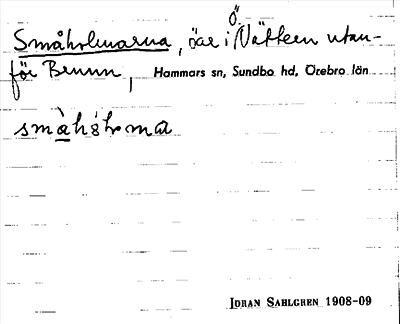 Småholmarna, öar i Ö. Vättern utan-
för Brunn, Hammars sn, Sundbo hd, Örebro län
Jöran Sahlgren 1908-09